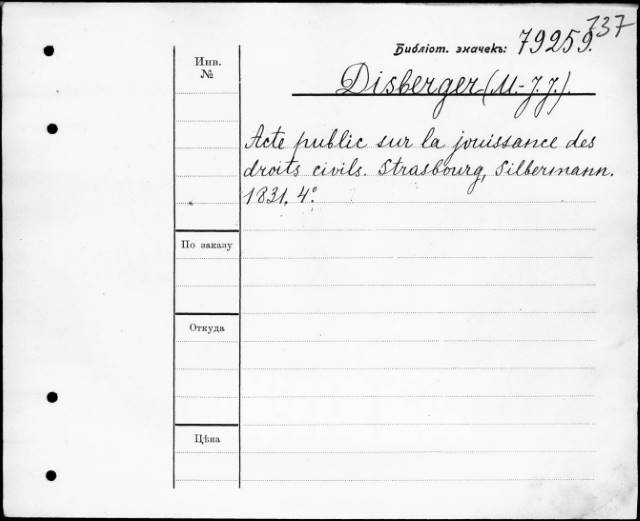 737
Библіот. значекъ: 79259.
Инв.
№
Disberger (M.-J. J.).
Acte public sur la jouissance des
droits civils. Strasbourg, Silbermann.
1831. 4°.
По заказу
Откуда
Цѣна